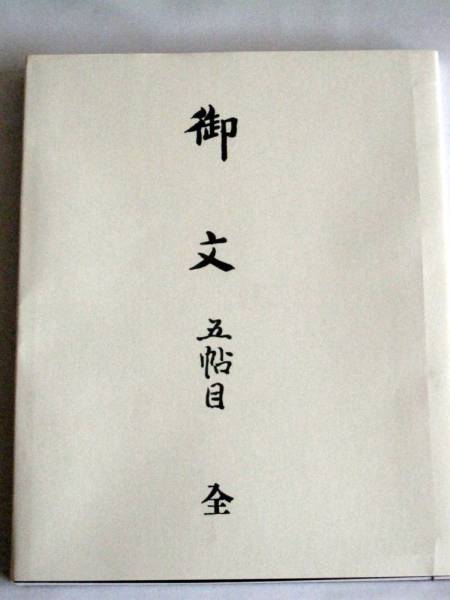 御文 五帖目 全